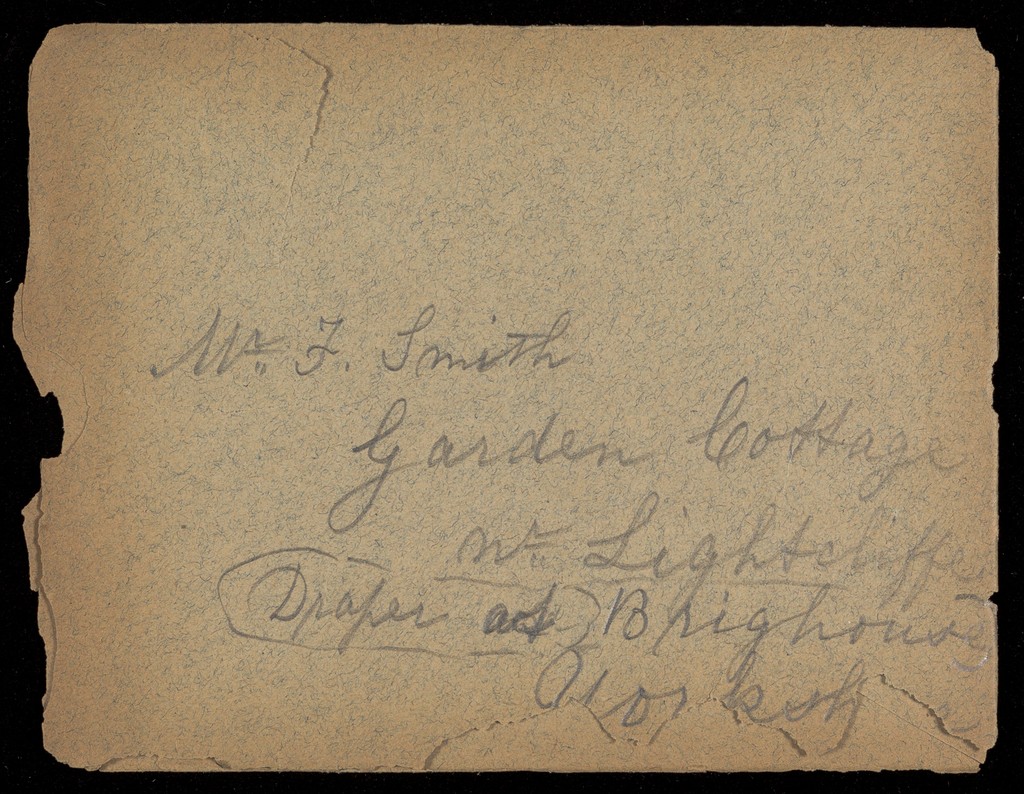 Mr. F. Smith
Garden Cottage
Nr Lightcliffe
Draper at Brighouse